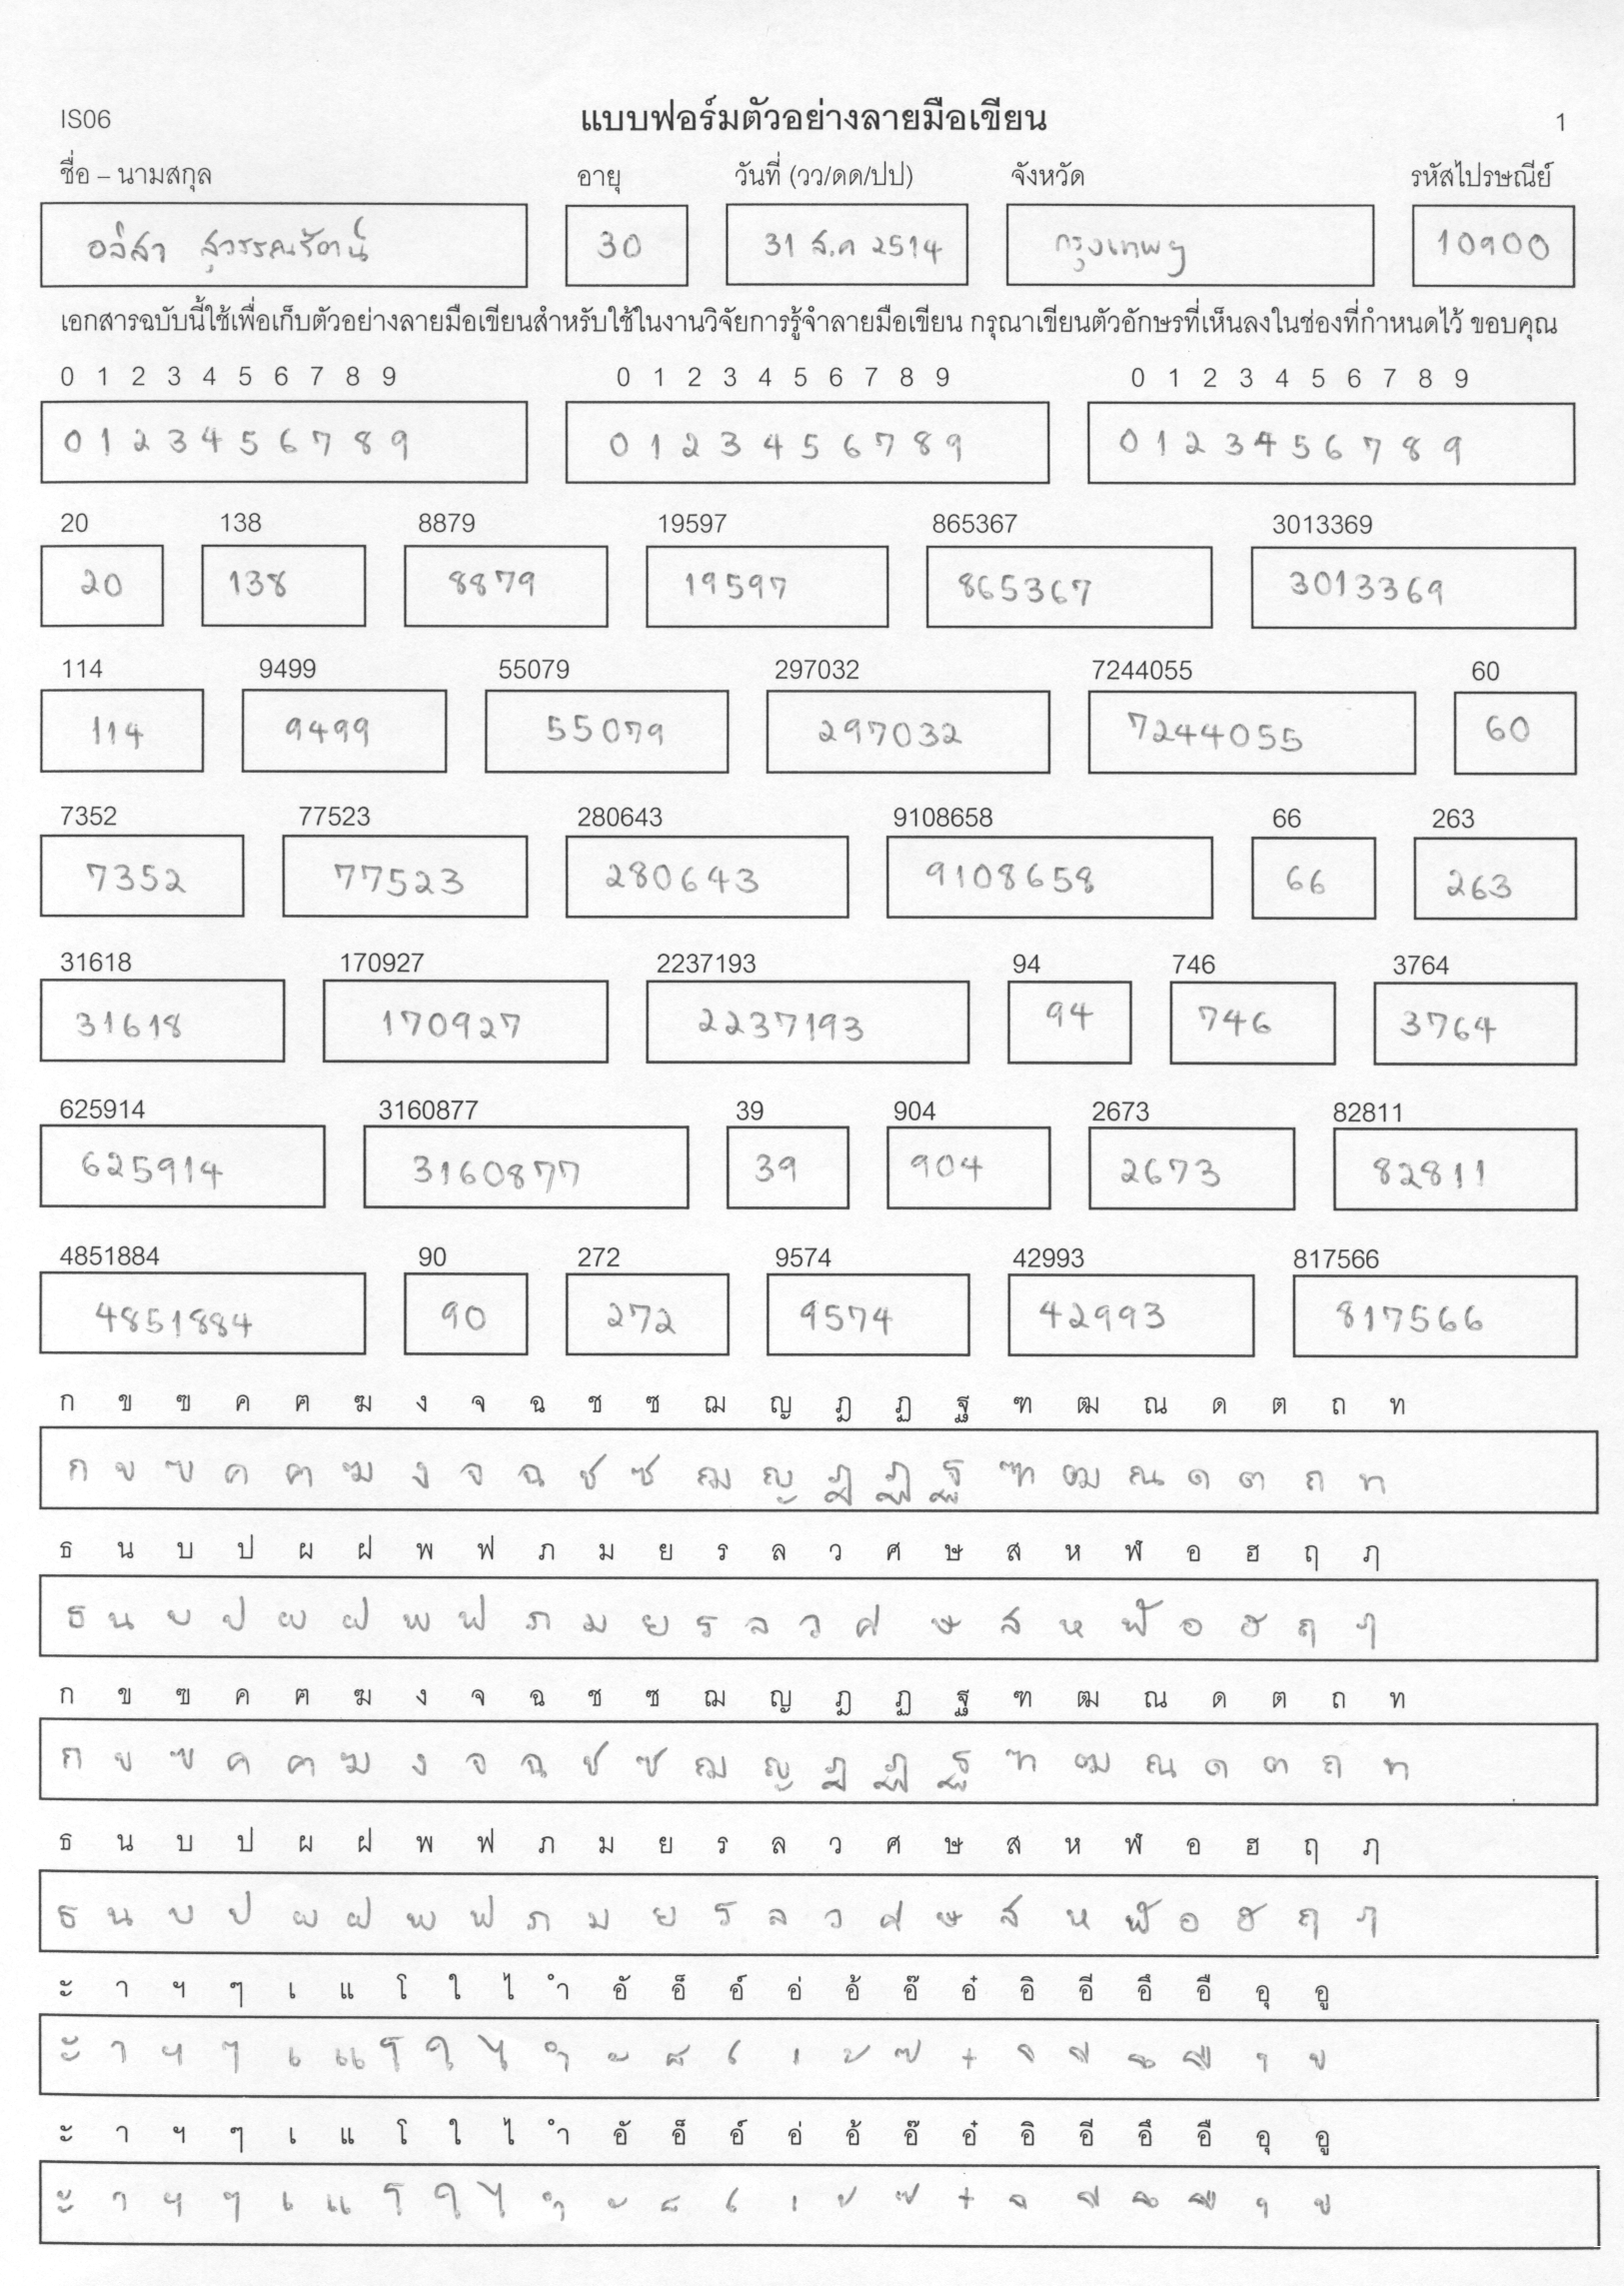 IS06 แบบฟอร์มตัวอย่างลายมือเขียน 1
ชื่อ – นามสกุล อายุ วันที่ (วว/ดด/ปป) จังหวัด รหัสไปรษณีย์
อลิสา สุวรรณรัตน์ 30 31 ส.ค 2514 กรุงเทพฯ 10900
เอกสารฉบับนี้ใช้เพื่อเก็บตัวอย่างลายมือเขียนสำหรับใช้ในงานวิจัยการรู้จำลายมือเขียน กรุณาเขียนตัวอักษรที่เห็นลงในช่องที่กำหนดไว้ ขอบคุณ
0 1 2 3 4 5 6 7 8 9 0 1 2 3 4 5 6 7 8 9 0 1 2 3 4 5 6 7 8 9
0 1 2 3 4 5 6 7 8 9 0 1 2 3 4 5 6 7 8 9 0 1 2 3 4 5 6 7 8 9
20 138 8879 19597 865367 3013369
20 138 8879 19597 865367 3013369
114 9499 55079 297032 7244055 60
114 9499 55079 297032 7244055 60
7352 77523 280643 9108658 66 263
7352 77523 280643 9108658 66 263
31618 170927 2237193 94 746 3764
31618 170927 2237193 94 746 3764
625914 3160877 39 904 2673 82811
625914 3160877 39 904 2673 82811
4851884 90 272 9574 42993 817566
4851884 90 272 9574 42993 817566
ก ข ฃ ค ฅ ฆ ง จ ฉ ช ซ ฌ ญ ฎ ฏ ฐ ฑ ฒ ณ ด ต ถ ท
ก ข ฃ ค ฅ ฆ ง จ ฉ ช ซ ฌ ญ ฎ ฏ ฐ ฑ ฒ ณ ด ต ถ ท
ธ น บ ป ผ ฝ พ ฟ ภ ม ย ร ล ว ศ ษ ส ห ฬ อ ฮ ฤ ฦ
ธ น บ ป ผ ฝ พ ฟ ภ ม ย ร ล ว ศ ษ ส ห ฬ อ ฮ ฤ ฦ
ก ข ฃ ค ฅ ฆ ง จ ฉ ช ซ ฌ ญ ฎ ฏ ฐ ฑ ฒ ณ ด ต ถ ท
ก ข ฃ ค ฅ ฆ ง จ ฉ ช ซ ฌ ญ ฎ ฏ ฐ ฑ ฒ ณ ด ต ถ ท
ธ น บ ป ผ ฝ พ ฟ ภ ม ย ร ล ว ศ ษ ส ห ฬ อ ฮ ฤ ฦ
ธ น บ ป ผ ฝ พ ฟ ภ ม ย ร ล ว ศ ษ ส ห ฬ อ ฮ ฤ ฦ
ะ า ฯ ๆ เ แ โ ใ ไ ำ อั อ็ อ์ อ่ อ้ อ๊ อ๋ อิ อี อึ อื อุ อู
ะ า ฯ ๆ เ แ โ ใ ไ ำ ั ็ ์ ่ ้ ๊ ๋ ิ ี ึ ื ุ ู
ะ า ฯ ๆ เ แ โ ใ ไ ำ อั อ็ อ์ อ่ อ้ อ๊ อ๋ อิ อี อึ อื อุ อู
ะ า ฯ ๆ เ แ โ ใ ไ ำ ั ็ ์ ่ ้ ๊ ๋ ิ ี ึ ื ุ ู